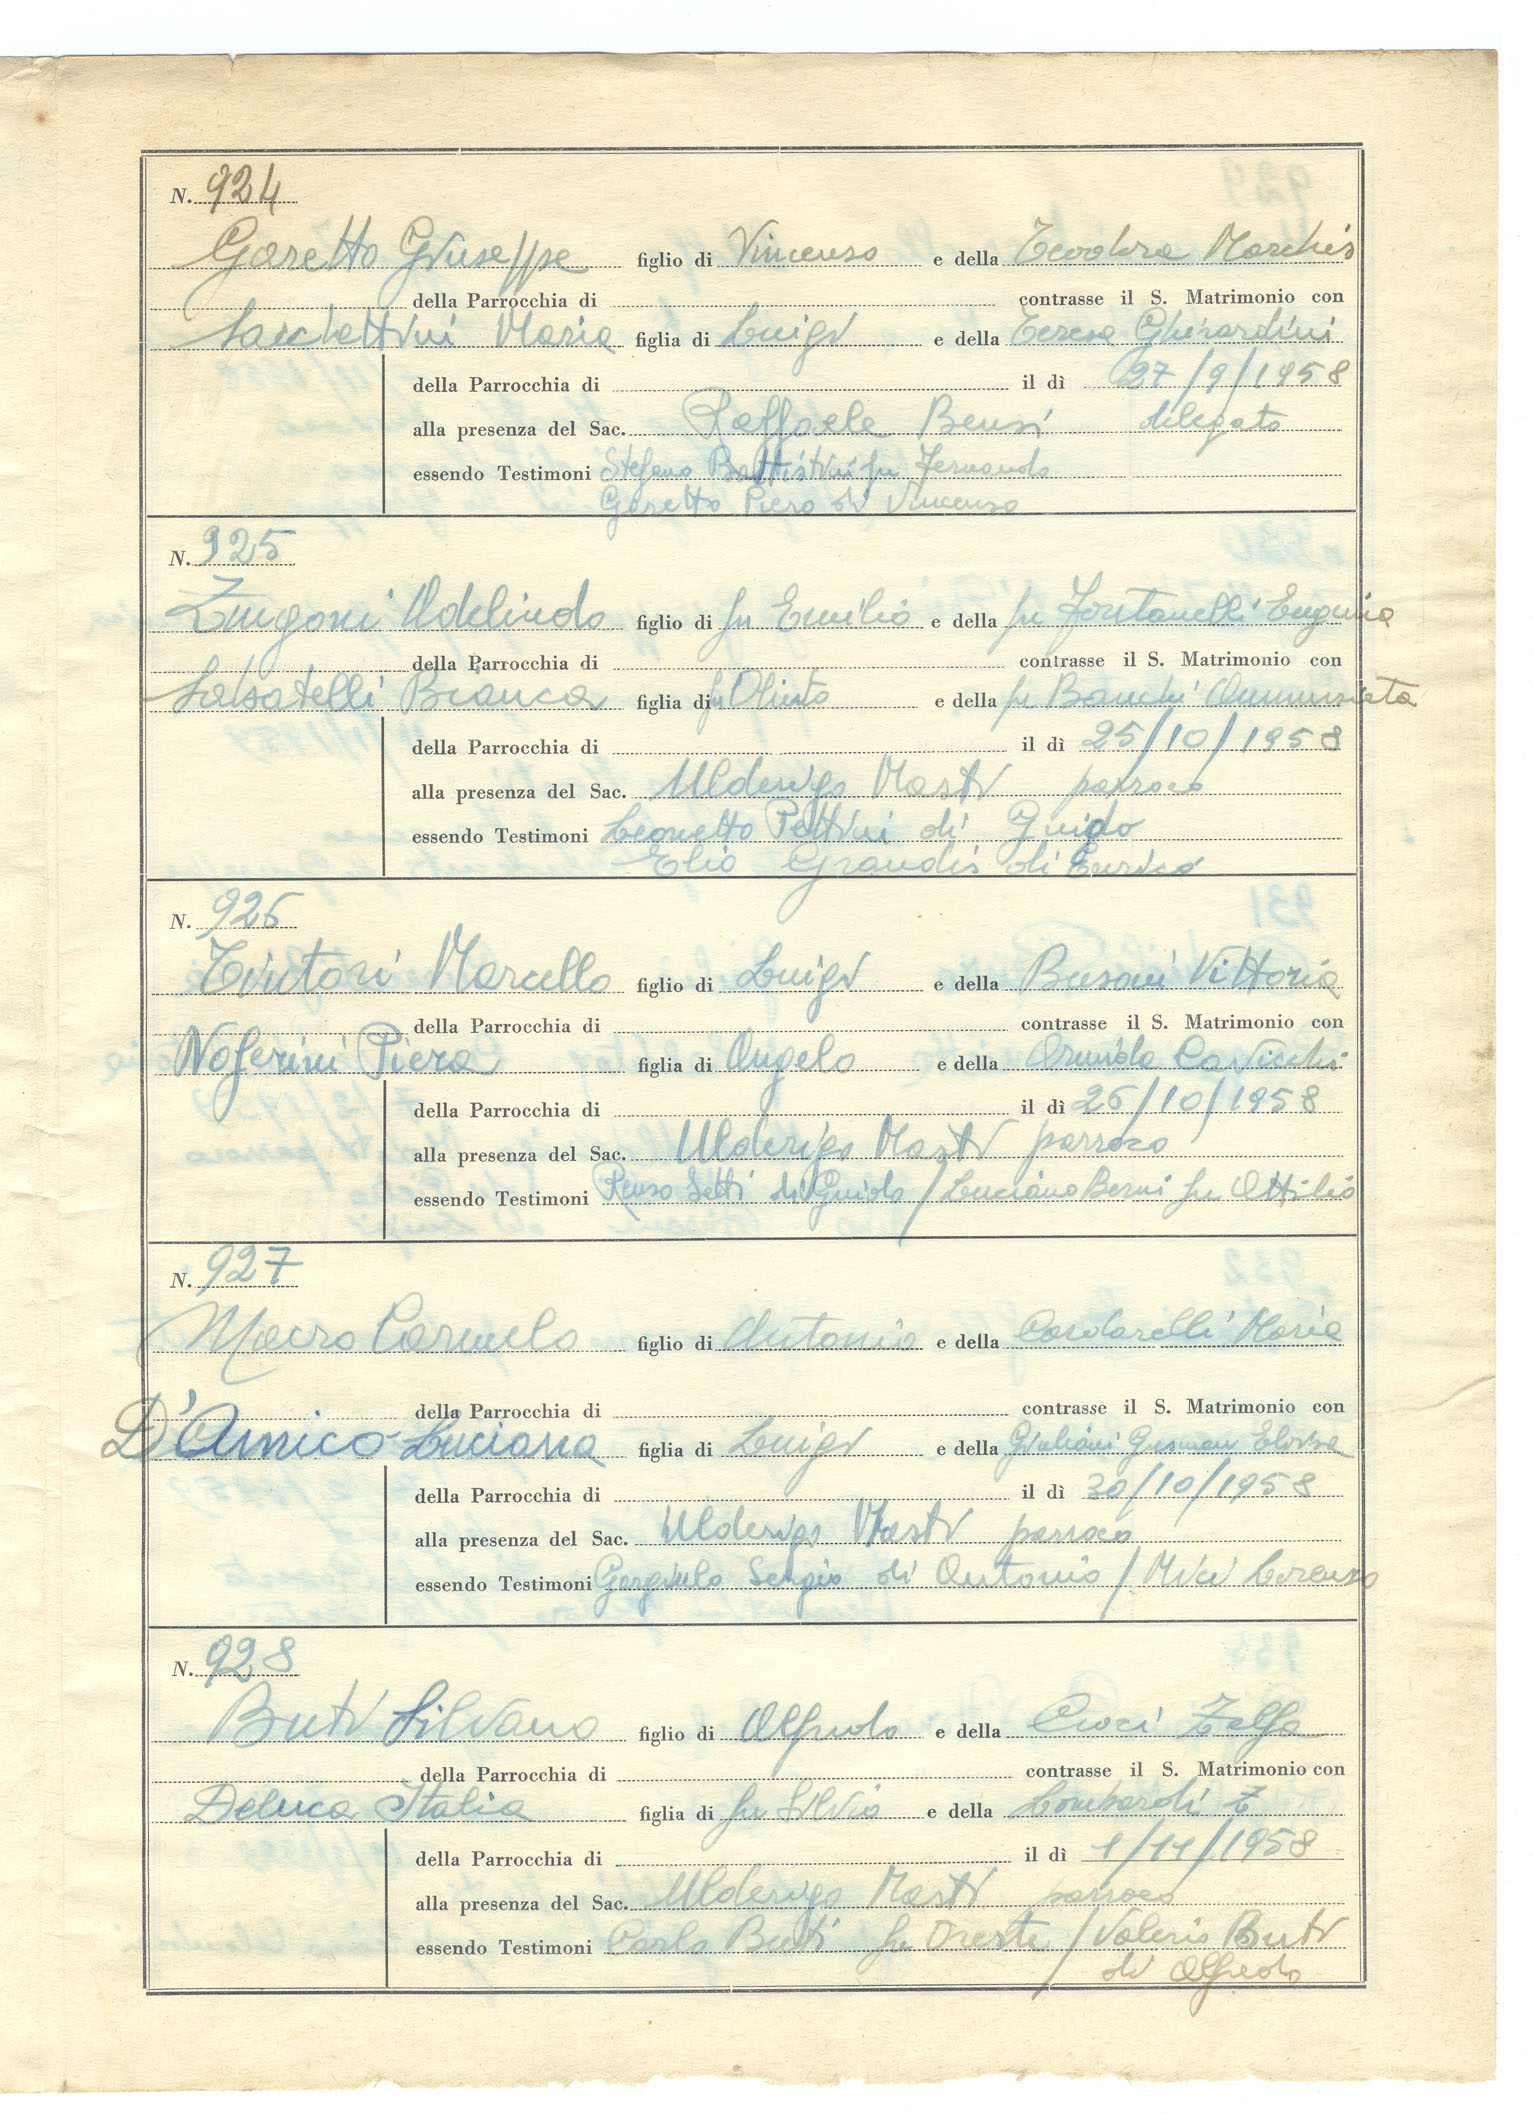 N. 924
Garetto Giuseppe figlio di Vincenzo e della Teodora Marchis
della Parrocchia di contrasse il S. Matrimonio con
Sacchettini Maria figlia di Luigi e della Teresa Gherardini
della Parrocchia di il dì 27/9/1958
alla presenza del Sac. Raffaele Bensi delegato
essendo Testimoni Stefano Battistini fu Fernando
Garetto Piero di Vincenzo
N. 925
Zingoni Adelindo figlio di fu Emilio e della fu Fontanelli Eugenia
della Parrocchia di contrasse il S. Matrimonio con
Salsatelli Bianca figlia di fu Olinto e della fu Banchi Annunziata
della Parrocchia di il dì 25/10/1958
alla presenza del Sac. Ulderigo Masti parroco
essendo Testimoni Leonetto Pettini di Guido
Elio Grandis di Enrico
N. 926
Tintori Marcello figlio di Luigi e della Busoni Vittoria
della Parrocchia di contrasse il S. Matrimonio con
Noferini Piera figlia di Angelo e della Armida Cavicchi
della Parrocchia di il dì 26/10/1958
alla presenza del Sac. Ulderigo Masti parroco
essendo Testimoni Renzo Setti di Guido / Luciano Berni fu Ottilio
N. 927
Macro Carmelo figlio di Antonio e della Cardarelli Maria
della Parrocchia di contrasse il S. Matrimonio con
D'Amico Luciana figlia di Luigi e della Giuliani Gusman
della Parrocchia di il dì 30/10/1958
alla presenza del Sac. Ulderigo Masti parroco
essendo Testimoni Gargiulo Sergio di Antonio / Mici Lorenzo
N. 928
Buti Silvano figlio di Alfredo e della Croci Zelfa
della Parrocchia di contrasse il S. Matrimonio con
Deluca Italia figlia di fu Silvio e della Lombardi Z
della Parrocchia di il dì 1/11/1958
alla presenza del Sac. Ulderigo Masti parroco
essendo Testimoni Carlo Buti fu Oreste / Valerio Buti
di Alfredo